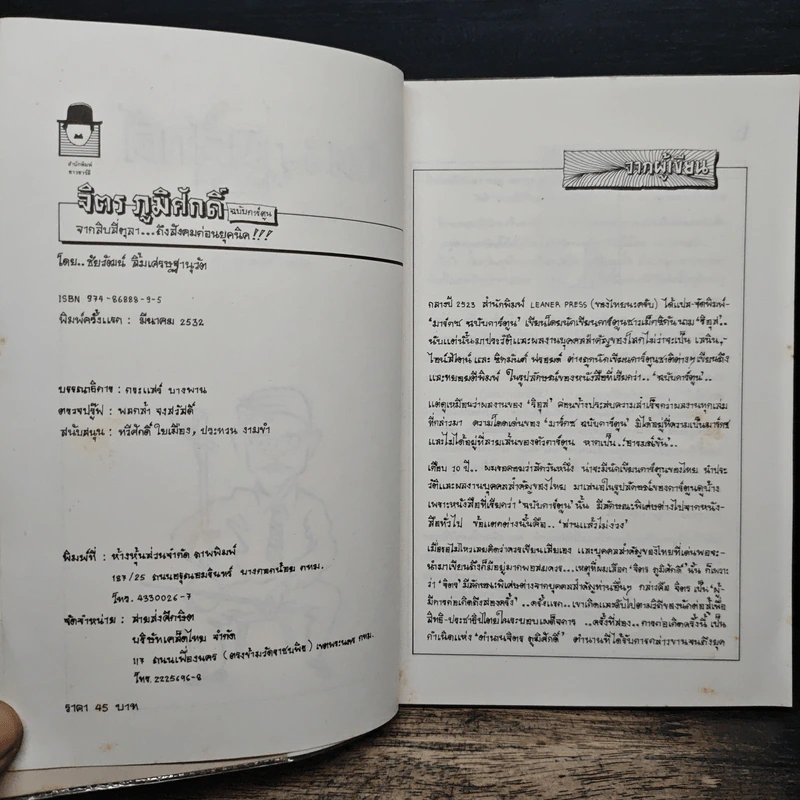 สำนักพิมพ์
ชาวชาร์ลี
จิตร ภูมิศักดิ์ ฉบับการ์ตูน
จากสิบสี่ตุลา...ถึงสังคมก่อนยุคนิค!!!
โดย.. ชัยรัฒน์ ลิ้มเศรษฐานุวัต
ISBN 974-86888-9-5
พิมพ์ครั้งแรก : มีนาคม 2532
บรรณาธิการ : กระแสร์ บางพาน
ตรวจปรู๊ฟ : พลกล้า จงสวัสดิ์
สนับสนุน : ทวีศักดิ์ ใบเมือง, ประทวน งามขำ
พิมพ์ที่ : ห้างหุ้นส่วนจำกัด ภาพพิมพ์
157/25 ถนนอรุณอมรินทร์ บางกอกน้อย กทม.
โทร. 4330026-7
จัดจำหน่าย : สายส่งศึกษิต
บริษัทเคล็ดไทย จำกัด
117 ถนนเฟื่องนคร (ตรงข้ามวัดราชบพิธ) เขตพระนคร กทม.
โทร. 2225696-8
ราคา 45 บาท
จากผู้เขียน
กลางปี 2523 สำนักพิมพ์ LEANER PRESS (ของไทยนะครับ) ได้แปล-จัดพิมพ์-
'มาร์กซ ฉบับการ์ตูน' เขียนโดยนักเขียนการ์ตูนชาวเม็กซิกันนาม 'ริอุส'
นับแต่นั้นมาประวัติและผลงานบุคคลสำคัญของโลกไม่ว่าจะเป็น เลนิน,-
ไอน์สไตน์ และ ซิกมันด์ ฟรอยด์ ต่างถูกนักเขียนการ์ตูนชาติต่างๆเขียนถึง
และทยอยตีพิมพ์ ในรูปลักษณ์ของหนังสือที่เรียกว่า..'ฉบับการ์ตูน'..
แต่ดูเหมือนว่าผลงานของ 'ริอุส' ค่อนข้างประสบความสำเร็จกว่าผลงานทุกเล่ม
ที่กล่าวมา ความโดดเด่นของ 'มาร์กซ ฉบับการ์ตูน' มิได้อยู่ที่ความเป็นมาร์กซ
และไม่ได้อยู่ที่ลายเส้นของตัวการ์ตูน หากเป็น..'อารมณ์ขัน'..
เกือบ 10 ปี.. ผมรอคอยว่าสักวันหนึ่ง น่าจะมีนักเขียนการ์ตูนของไทย นำประ
วัติและผลงานบุคคลสำคัญของไทย มาเสนอในรูปลักษณ์ของการ์ตูนดูบ้าง
เพราะหนังสือที่เรียกว่า 'ฉบับการ์ตูน' นั้น มีลักษณะพิเศษต่างไปจากหนัง-
สือทั่วไป ข้อแตกต่างนั้นคือ..'อ่านแล้วไม่ง่วง'
เมื่อรอไม่ไหวเลยคิดว่าควรเขียนเสียเอง และบุคคลสำคัญของไทยที่เด่นพอจะ-
นำมาเขียนถึงก็มีอยู่มากพอสมควร...เหตุที่ผมเลือก 'จิตร ภูมิศักดิ์' นั้น ก็เพราะ
ว่า 'จิตร' มีลักษณะพิเศษต่างจากบุคคลสำคัญท่านอื่นๆ กล่าวคือ จิตร เป็น 'ผู้-
มีการก่อเกิดถึงสองครั้ง'..ครั้งแรก..เขาเกิดและดับไปตามวิถีของนักต่อสู้เพื่อ
สิทธิ-ประชาธิปไตยในระบอบเผด็จการ ..ครั้งที่สอง..การก่อเกิดครั้งนี้ เป็น
กำเนิดแห่ง 'ตำนานจิตร ภูมิศักดิ์' ตำนานที่ได้รับการกล่าวขานจนถึงยุค